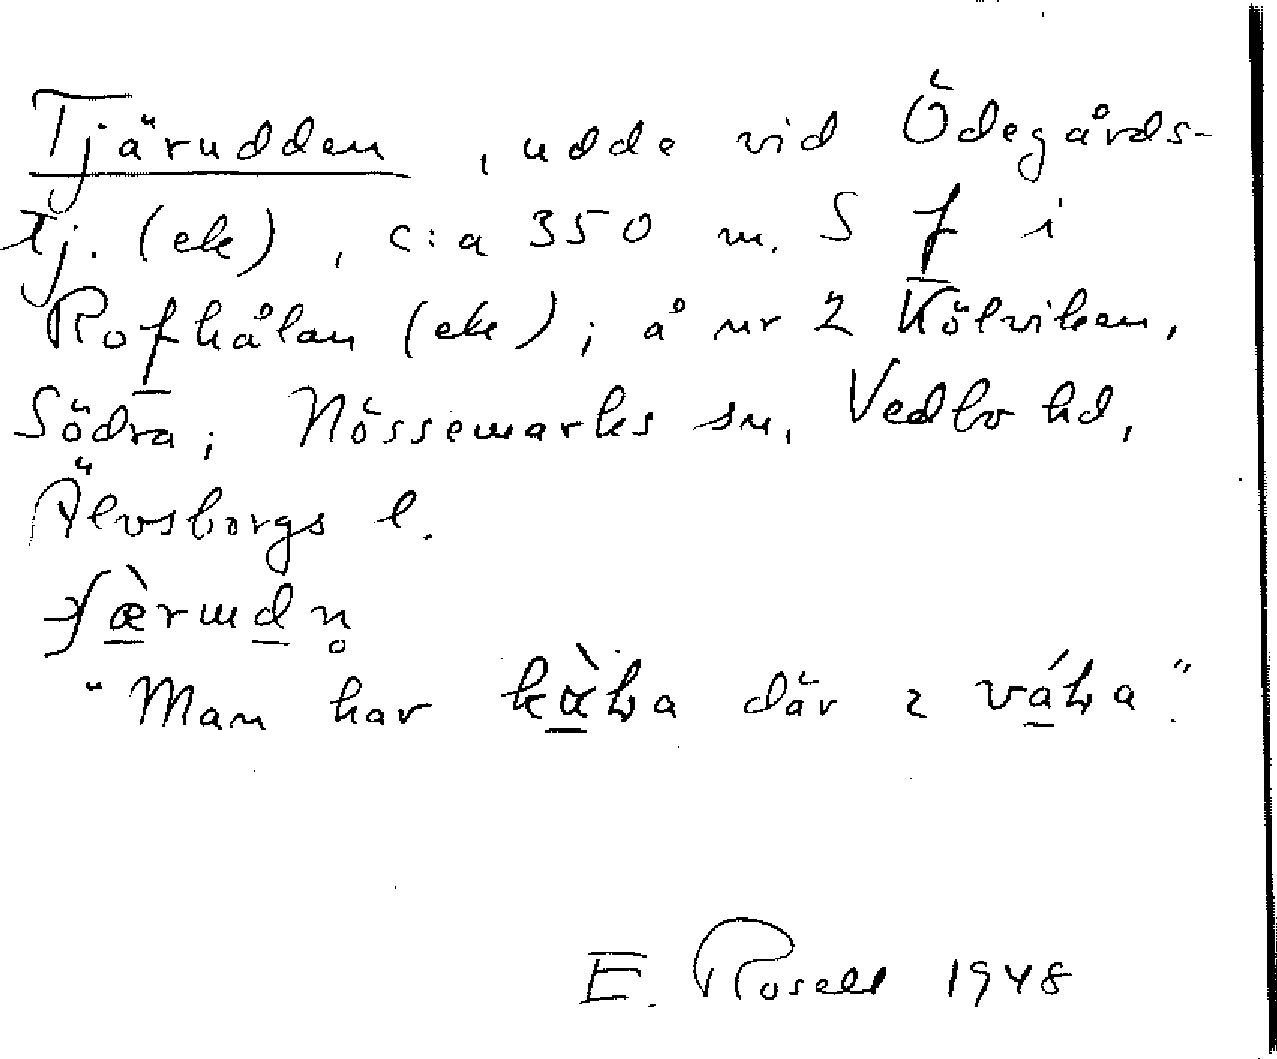 Tjärudden, udde vid Ödegårds-
tj. (ek), c:a 350 m. S f i
Rofhålan (ek); å nr 2 Kölviken,
Södra; Nössemarks sn, Vedbo hd,
Älvsborgs l.
"Man har där ɩ
E. Rosell 1948